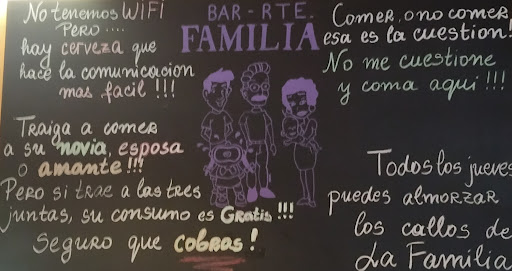 No tenemos WIFI
PERO....
hay cerveza que
hace la comunicacion
mas facil !!!
Traiga a comer
a su novia, esposa
o amante!!!
Pero si trae a las tres
juntas, su consumo es Gratis!!!
Seguro que cobras!
BAR-RTE.
FAMILIA
Comer, o no comer
esa es la cuestion!
No me cuestione
y coma aquí !!!
Todos los jueves
puedes almorzar
los callos de
La Familia